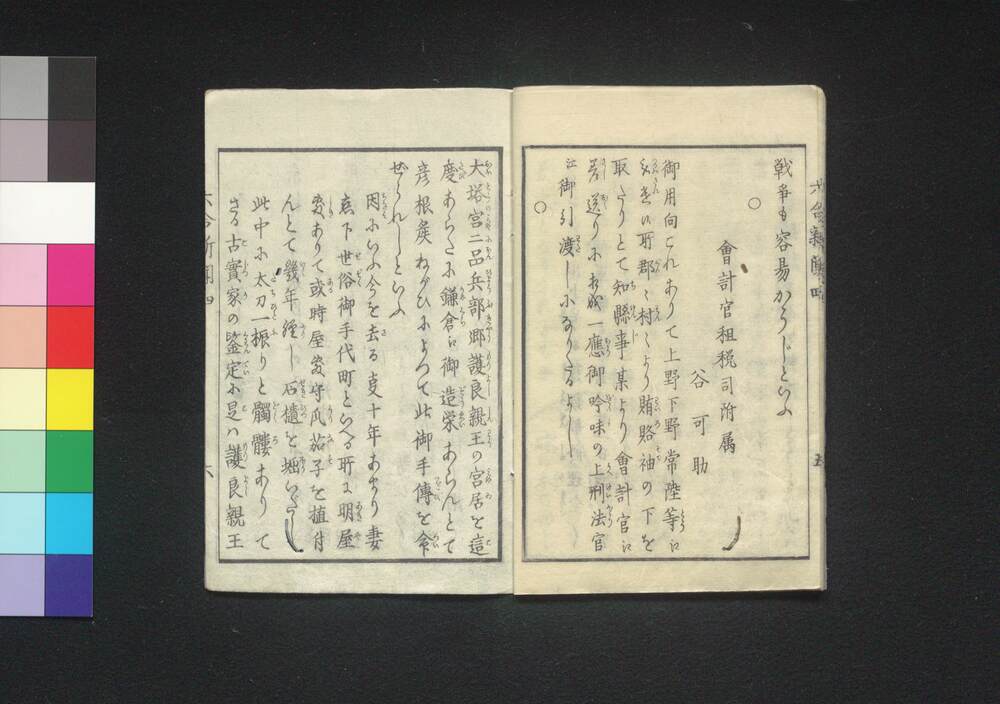 戦争も容易からじといふ
○
會計官租税司附属
谷可助
御用向これありて上野下野常陸等江
取たりとて知縣事某より會計官江
差送りに相成一應御吟味の上刑法官
江御引渡しになりたるよし
○
六合新聞四
五
大塔宮二品兵部卿護良親王の宮居を這
度あらたに鎌倉江御造栄あらんとて
彦根矦ねがひによつて此御手傳を命
ぜられしといふ
因にいふ今を去る叓十年あまり妻
恋下世俗御手代町といへる所に明屋
敷ありて或時屋敷守瓜茄子を植付
んとて幾年経し石櫃を堀いだし
此中に太刀一振りと髑髏ありて
さる古實家の鑒定に是ハ護良親王
六合新聞四
六